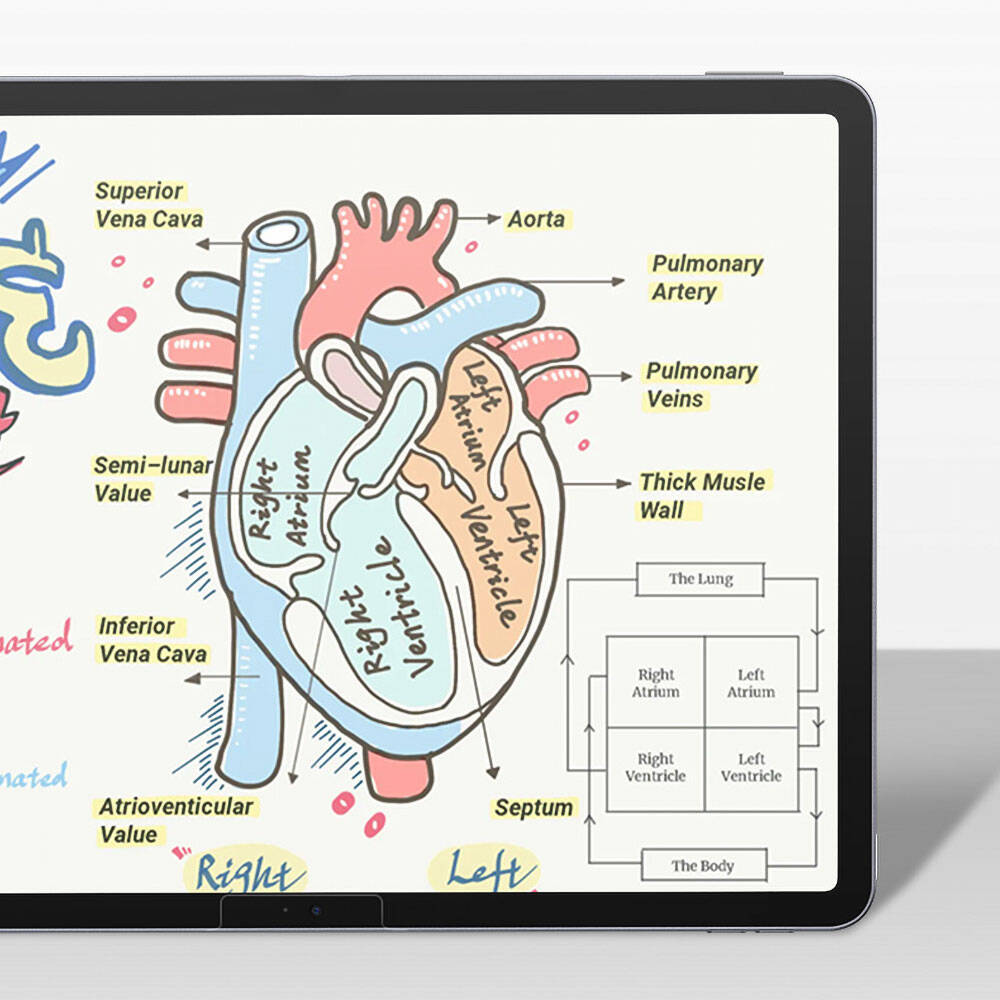 Superior
Vena Cava
Aorta
Pulmonary
Artery
Pulmonary
Veins
Left
Atrium
Semi–lunar
Value
Right
Atrium
Thick Musle
Wall
Left
Ventricle
Right
Ventricle
Inferior
Vena Cava
Atrioventicular
Value
Septum
The Lung
Right
Atrium
Left
Atrium
Right
Ventricle
Left
Ventricle
The Body
Right
Left